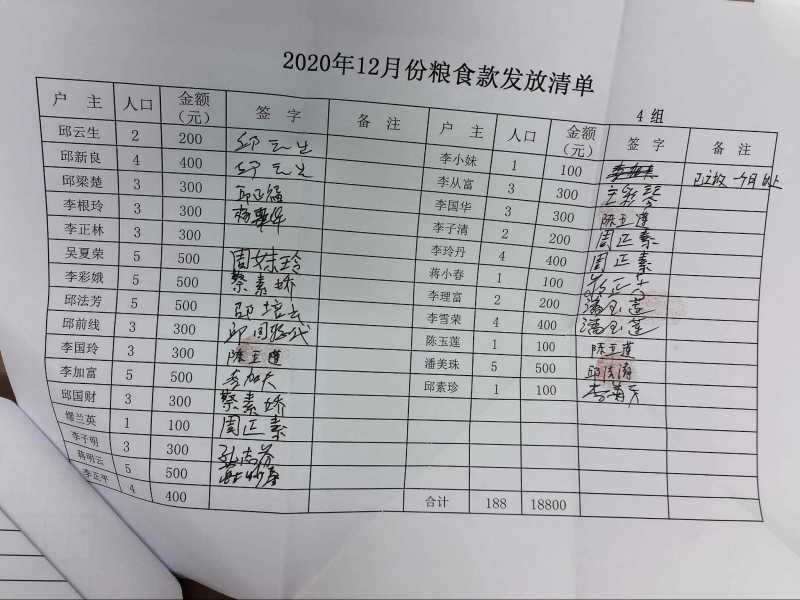 2020年12月份粮食款发放清单
4 组
户 主 人口 金额（元） 签 字 备 注
邱云生 2 200 邱云生
邱新良 4 400 邱云生
邱梁楚 3 300
李根玲 3 300
李正林 3 300
吴夏荣 5 500 周妹玲
李彩娥 5 500 蔡素娇
邱法芳 5 500
邱前线 3 300
李国玲 3 300 陈玉莲
李加富 5 500 李加夫
邱国财 3 300 蔡素娇
缪兰英 1 100 周正素
李子明 3 300
蒋明云 5 500
李正平 4 400
户 主 人口 金额（元） 签 字 备 注
李小妹 1 100
李从富 3 300
李国华 3 300 陈玉莲
李子清 2 200 周正素
李玲丹 4 400 周正素
蒋小春 1 100
李理富 2 200 潘玉莲
李雪荣 4 400 潘玉莲
陈玉莲 1 100 陈玉莲
潘美珠 5 500 邱法涛
邱素珍 1 100
合计 188 18800